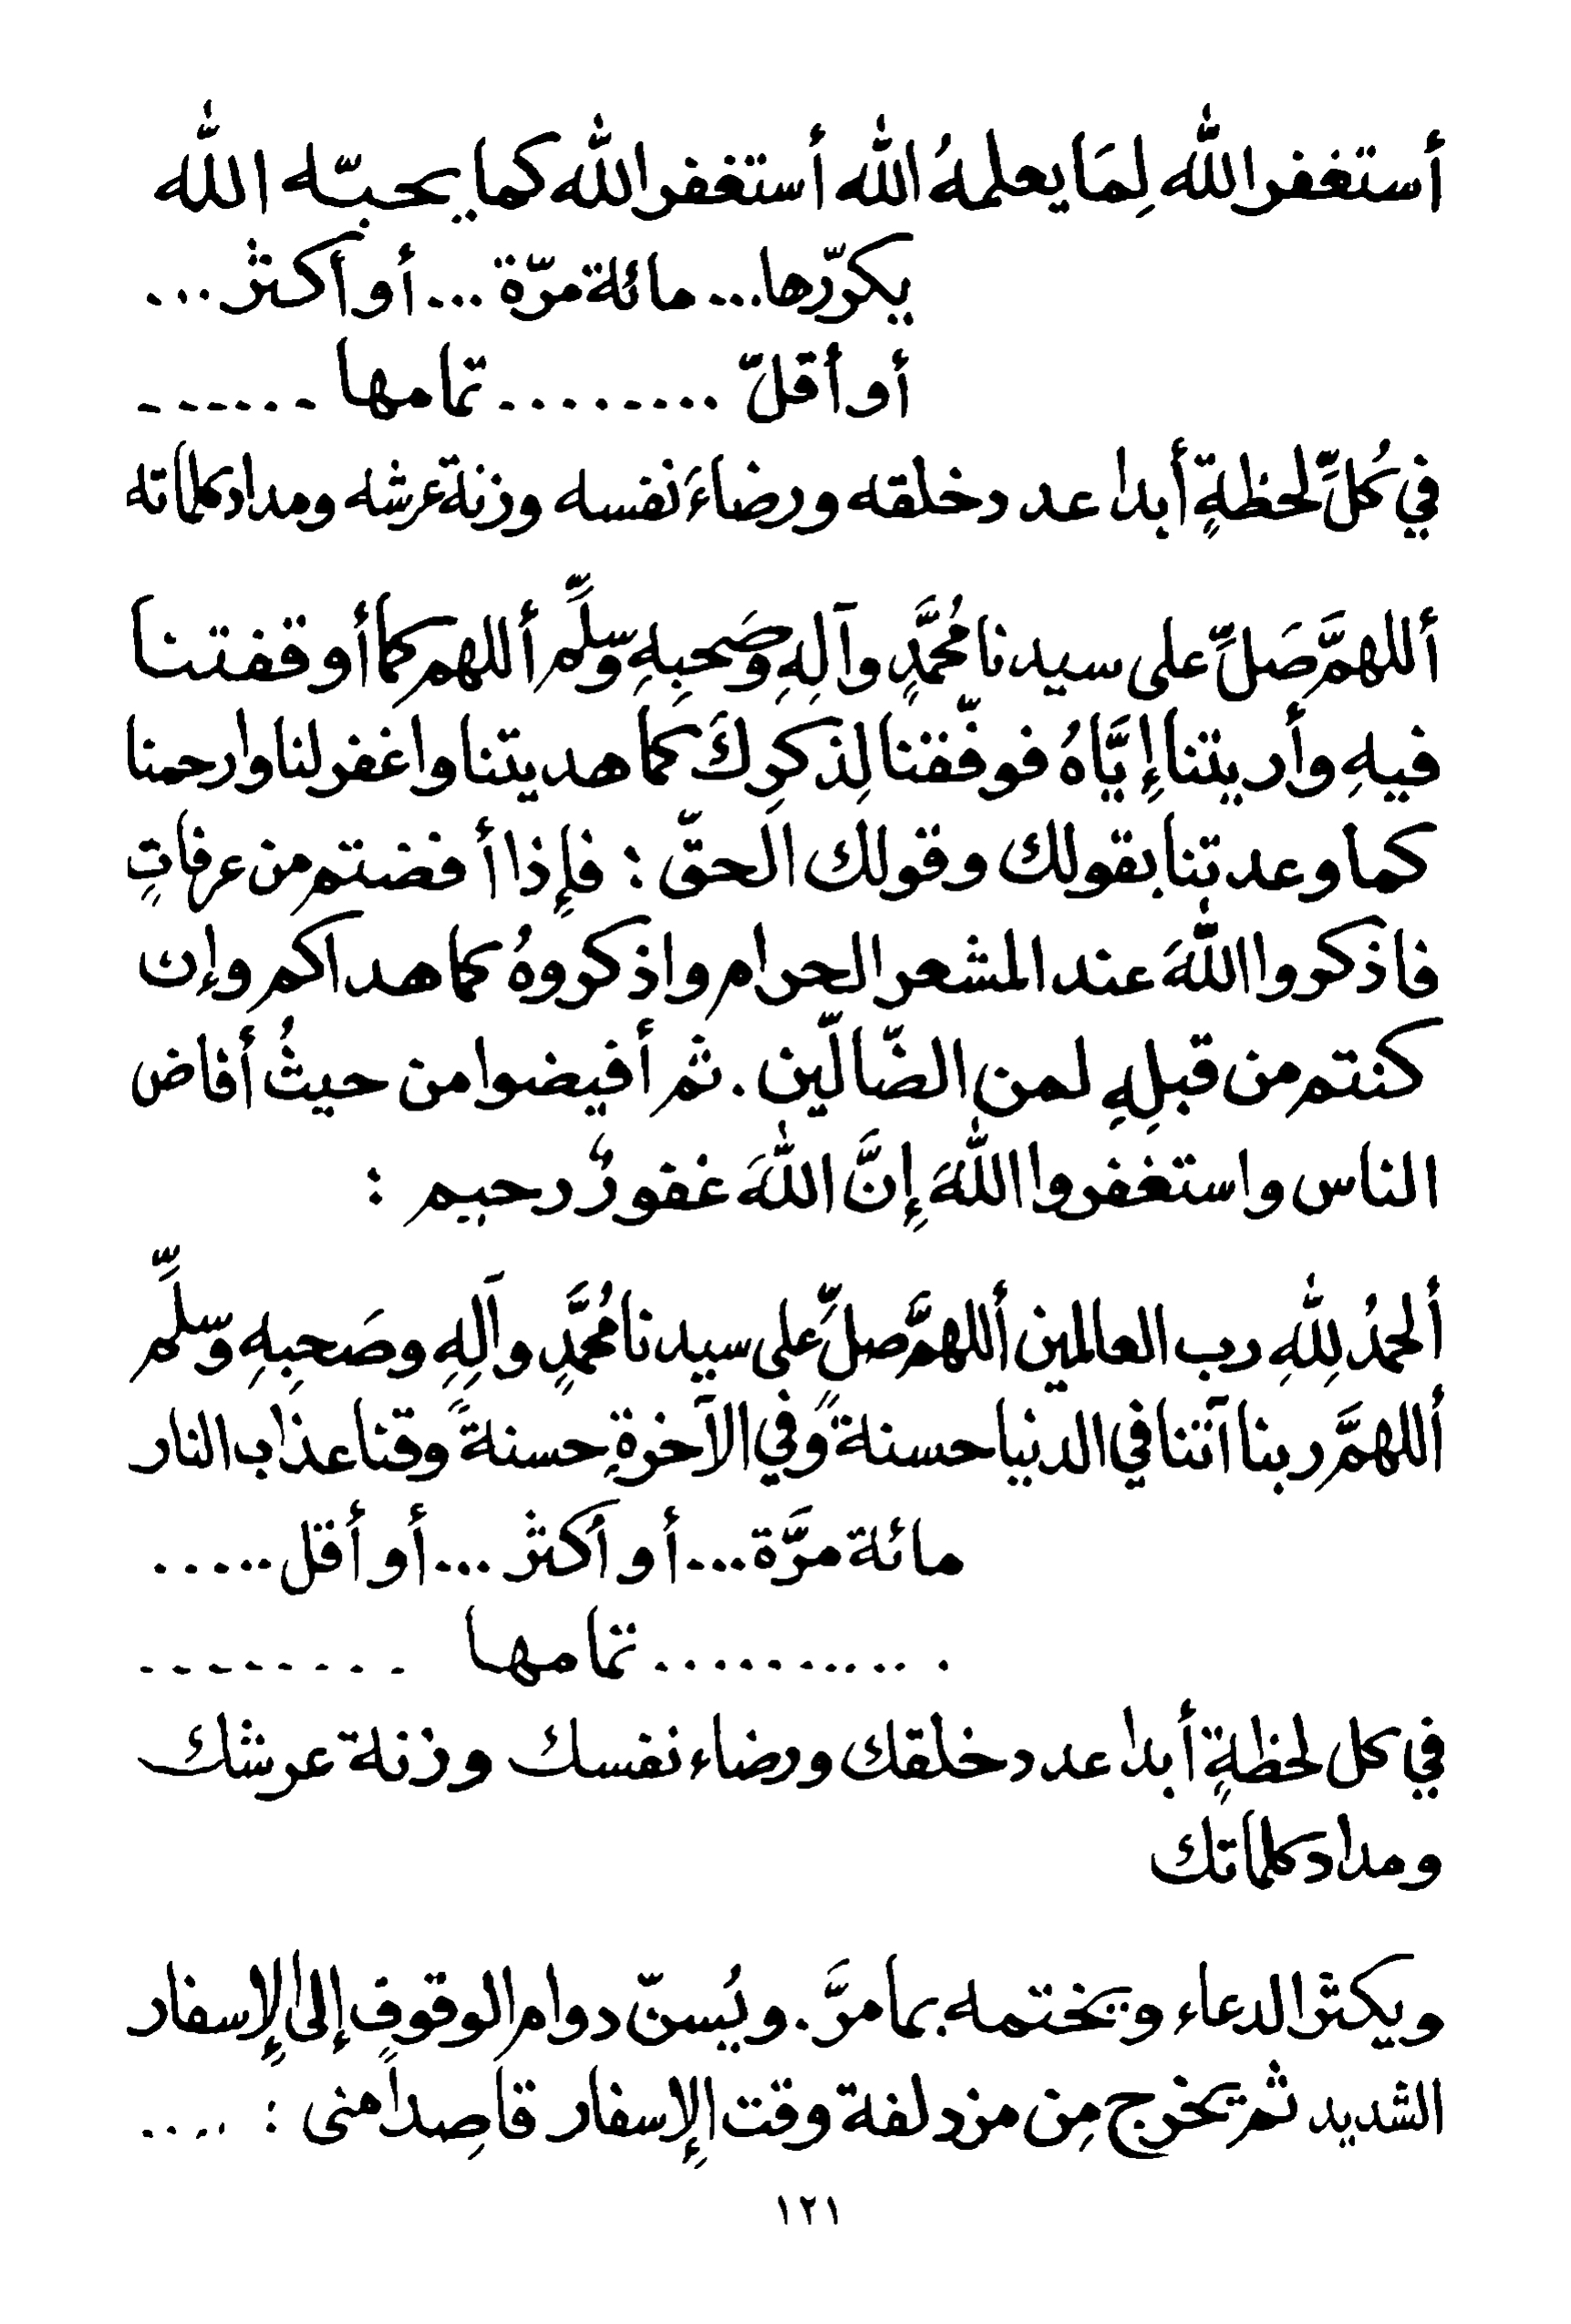 أستغفر الله لِمَا يعلمهُ الله أستغفر الله كما يحبّه الله
يكرّرها... مائة مرّة ... أو أكثر ...
أو أقلّ ......... تمامها ......
في كُلِّ لحظةٍ أبدا عدد خلقه ورضاءَ نفسه وزنة عرشه ومداد كلماته
أللهمَّ صَلِّ على سيدنا مُحمَّدٍ وآلِهِ وَصَحبِهِ وسلِّم أللهم كما أوقفتنا
فيهِ وأريتنا إيَّاهُ فوفّقنا لِذكرِكَ كما هديتنا واغفر لنا وارحمنا
كما وعدتنا بقولك وقولك الحقّ : فإذا أفضتم من عرفاتٍ
فاذكروا اللهَ عند المشعر الحرام واذكروهُ كما هداكم وإن
كنتم من قبلِهِ لمن الضّالّين . ثم أفيضوا من حيثُ أفاض
الناس واستغفروا اللهَ إنَّ اللهَ غفورٌ رحيم :
ألحمدُ لِلّهِ رب العالمين أللهمَّ صلِّ على سيدنا مُحمَّدٍ وآلِهِ وصَحبِهِ وسلِّم
أللهمَّ ربنا آتنا في الدنيا حسنةً وفي الآخرةِ حسنةً وقنا عذاب النار
مائة مرَّة ... أو أكثر ... أو أقل ......
............ تمامها .........
في كل لحظةٍ أبدا عدد خلقك ورضاء نفسك وزنة عرشك
ومداد كلماتك
ويكثر الدعاء ويختمه بما مرَّ . ويُسنّ دوام الوقوف إلى الإسفار
الشديد ثم يخرج مِن مزدلفة وقت الإسفار قاصِداً منى : ....
١٢١